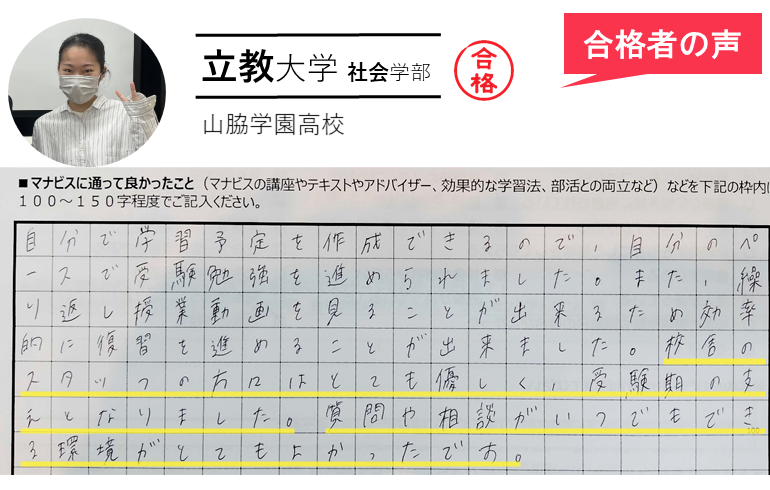 合格者の声
立教大学 社会学部
合格
山脇学園高校
■マナビスに通って良かったこと（マナビスの講座やテキストやアドバイザー、効果的な学習法、部活との両立など）などを下記の枠内に
１００～１５０字程度でご記入ください。
自分で学習予定を作成できるので，自分のペ
ースで受験勉強を進められました。また，繰
り返し授業動画を見ることが出来るため効率
的に復習を進めることが出来ました。校舎の
スタッフの方々はとても優しく，受験期の支
えとなりました。質問や相談がいつでもでき
100
る環境がとてもよかったです。